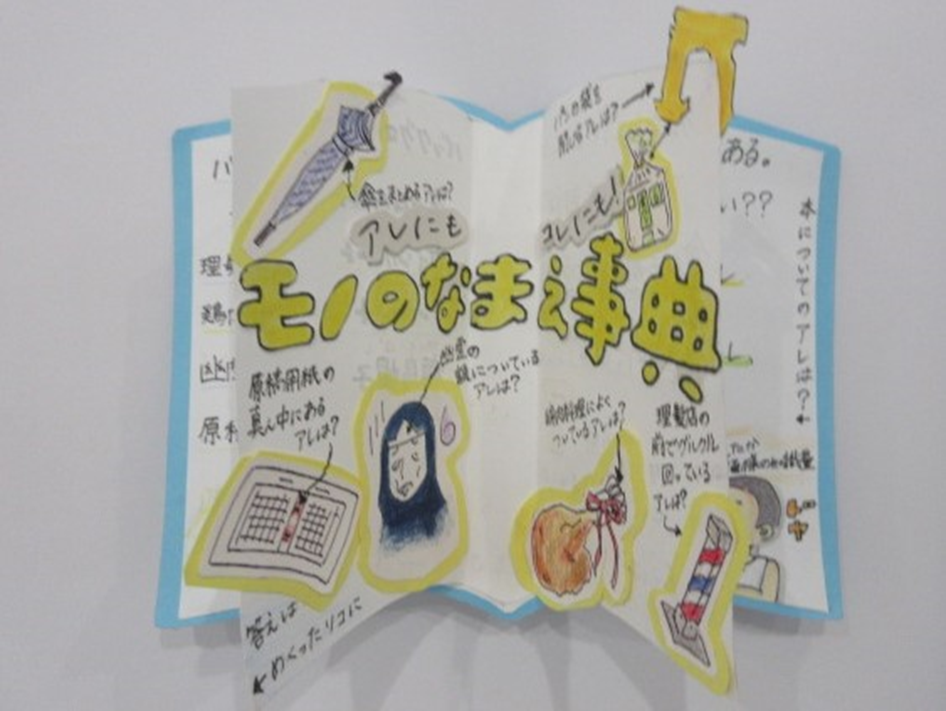 傘をまとめるアレは?
アレにも
パンの袋を
閉じるアレは?
コレにも!
モノのなまえ事典
原稿用紙の
真ん中にある
アレは?
幽霊の
額についている
アレは?
鶏肉料理によく
ついているアレは?
理髪店の
前でグルグル
回っている
アレは?
答えは
めくったソコに
本についてのアレは?
ある。
い??